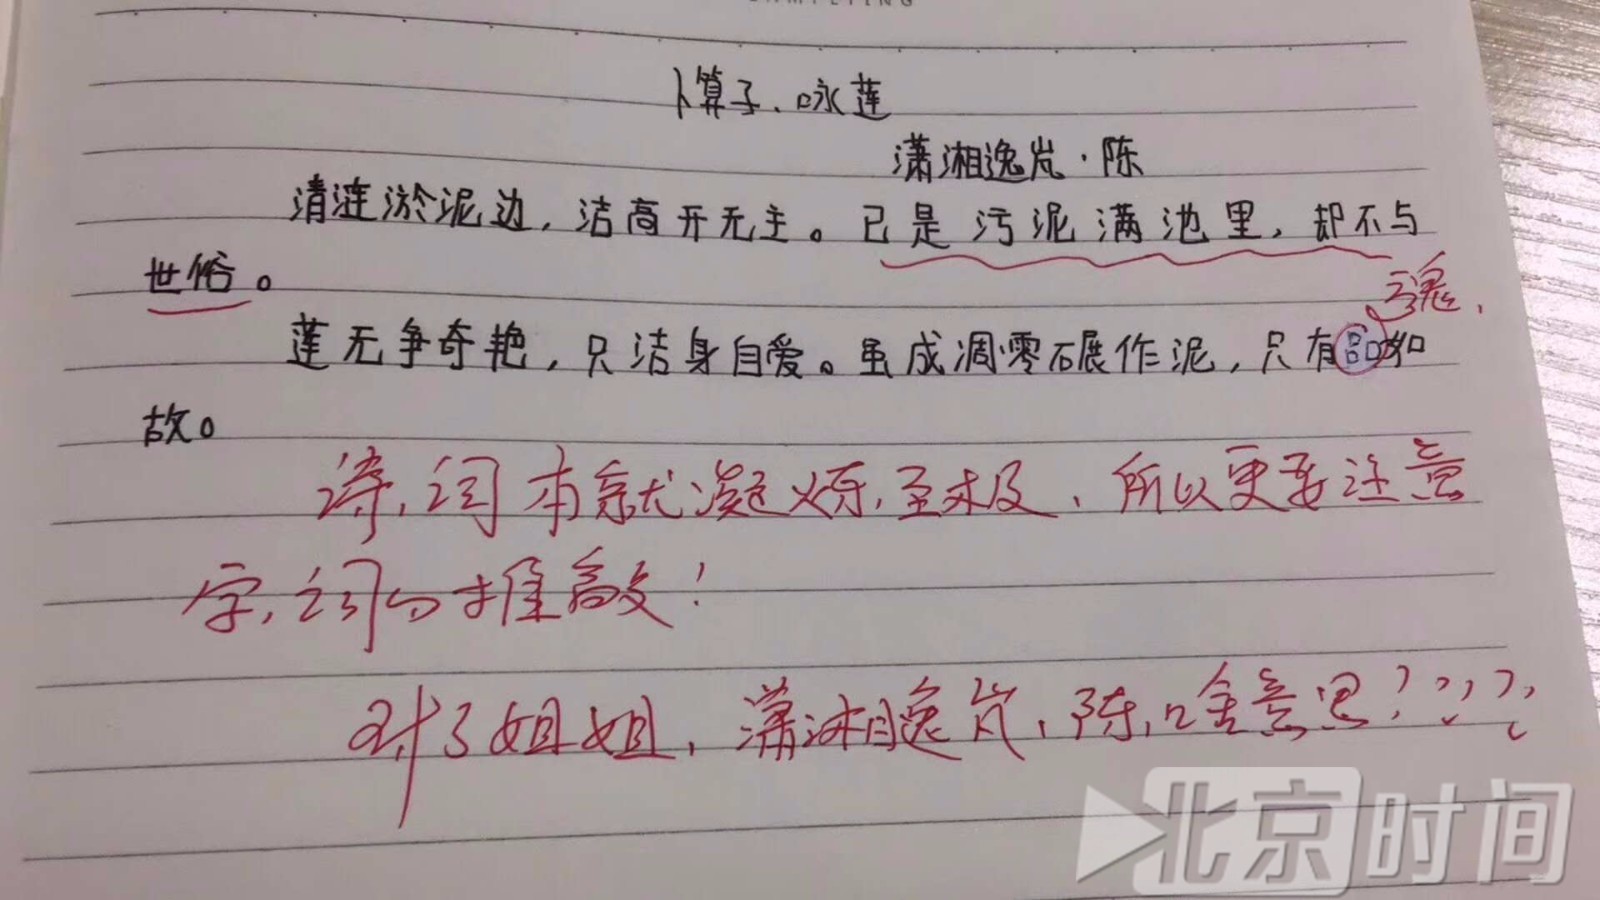 卜算子、咏莲
潇湘逸岚·陈
清涟淤泥边，洁高开无主。已是污泥满池里，却不与
世俗。
魂.
莲无争奇艳，只洁身自爱。虽成凋零碾作泥，只有品如
故。
诗，词本就凝炼，至极，所以更要注意
字，词的推敲！
对了姐姐，潇湘逸岚，陈，啥意思？？？？
北京时间